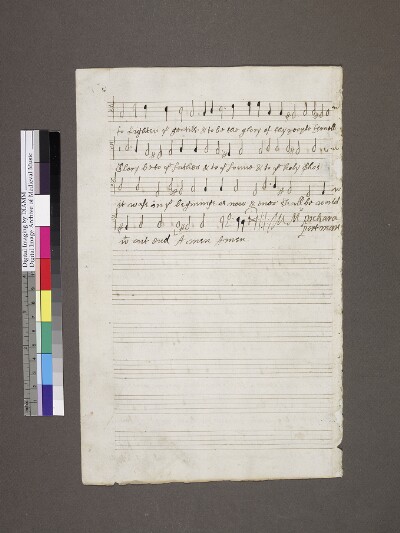 to lighten yᵉ gentils & to be the glory of thy people Israell
Glory be to yᵉ father & to yᵉ sonne & to yᵉ holy ghost
it was in yᵉ beginninge & now & ever shall be world
wᵗ out end Amen Amen
Mʳ
Digital Imaging by DIAMM
Digital Image Archive of Medieval Music